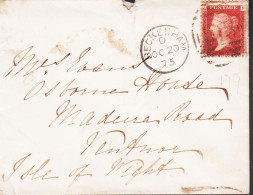 BECKENHAM
D
OC 20
75
POSTAGE
Mrs Evans
Osborne House
Madeira Road
Ventnor
Isle of Wight